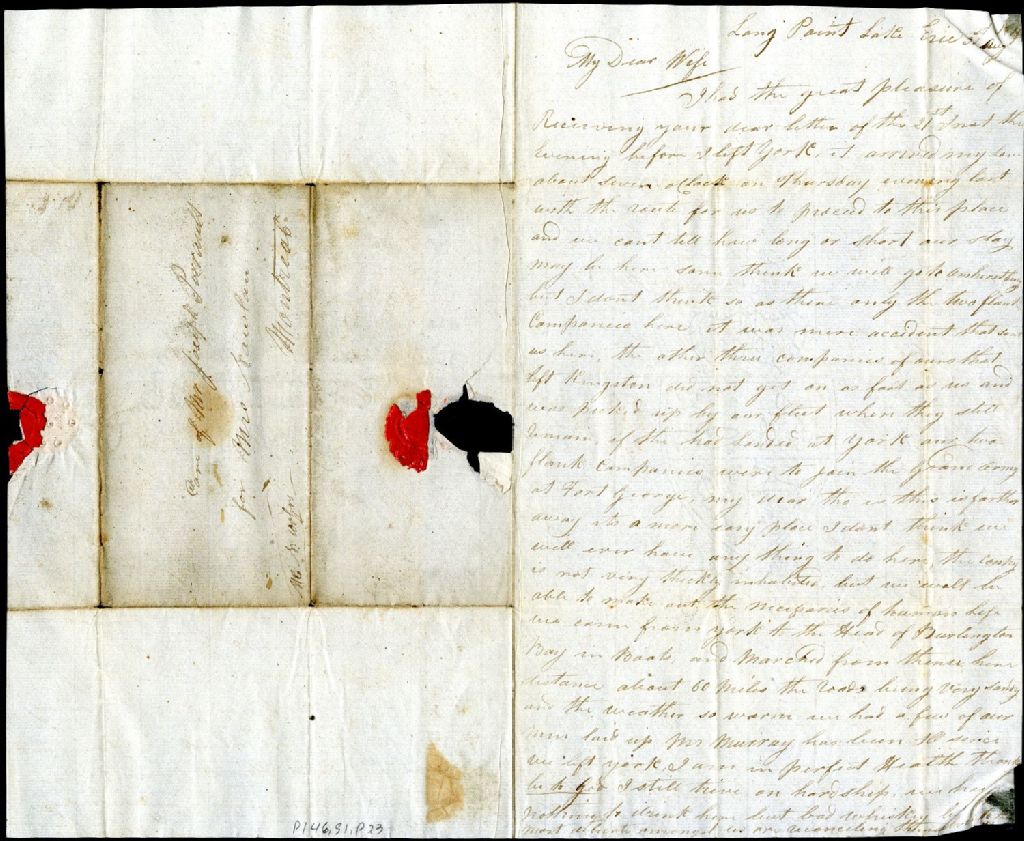 Care of Mr Joseph
for Mrs
Montreal
P146,S1,P23
Long Point Lake Erie
My Dear Wife
I had the great pleasure of
Receiving your dear letter of the 21st Inst the
Evening before I left York, it arrived my
about seven oClock on Thursday evening last
with the route for us to proceed to this place
and we cant tell how long or short our stay
may be here some think we will go to
but I dont think so as there only the two flank
Companies here it was mere accident that
us here, the other three companies of ours that
left Kingston did not get on as fast as us and
was picked up by our fleet when they
of the had landed at York our two
flank Companies were to join the Grand army
at Fort George, my dear tho this is farther
away its a more easy place I dont think we
will ever have any thing to do here the
is not very thickly inhabited, but we will be
able to make out the of human life
we came from York to the Head of Burlington
Bay in Boats, and Marched from thence here
distance about 60 Miles the roads being very sandy
and the weather so warm we had a few of our
men laid up Mr Murray has been Ill since
we left York, I am in perfect Health
be to God I still on hardship, we
nothing to drink here but bad whiskey
most amongst us are